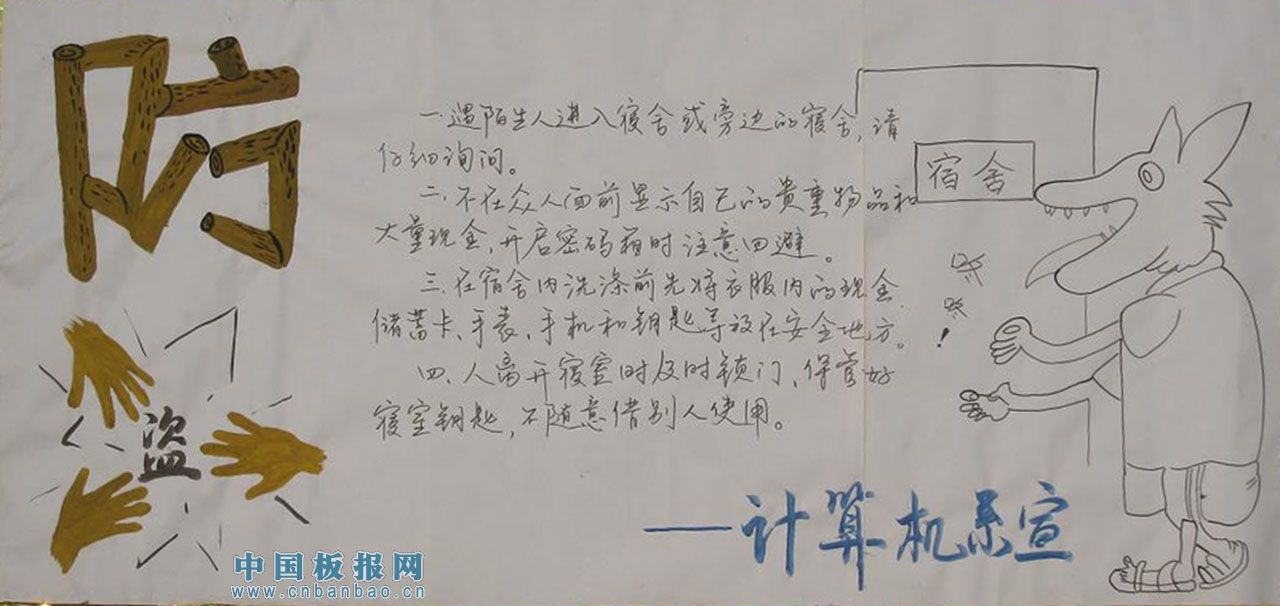 防
盗
一.遇陌生人进入宿舍或旁边的宿舍,请
仔细询问。
二.不在众人面前显示自己的贵重物品和
大量现金,开启密码箱时注意回避。
三.在宿舍内洗涤前先将衣服内的现金、
储蓄卡、手表、手机和钥匙等放在安全地方。
四、人离开寝室时及时锁门、保管好
寝室钥匙,不随意借别人使用。
宿舍
!
——计算机系宣
中国板报网
www.cnbanbao.cn